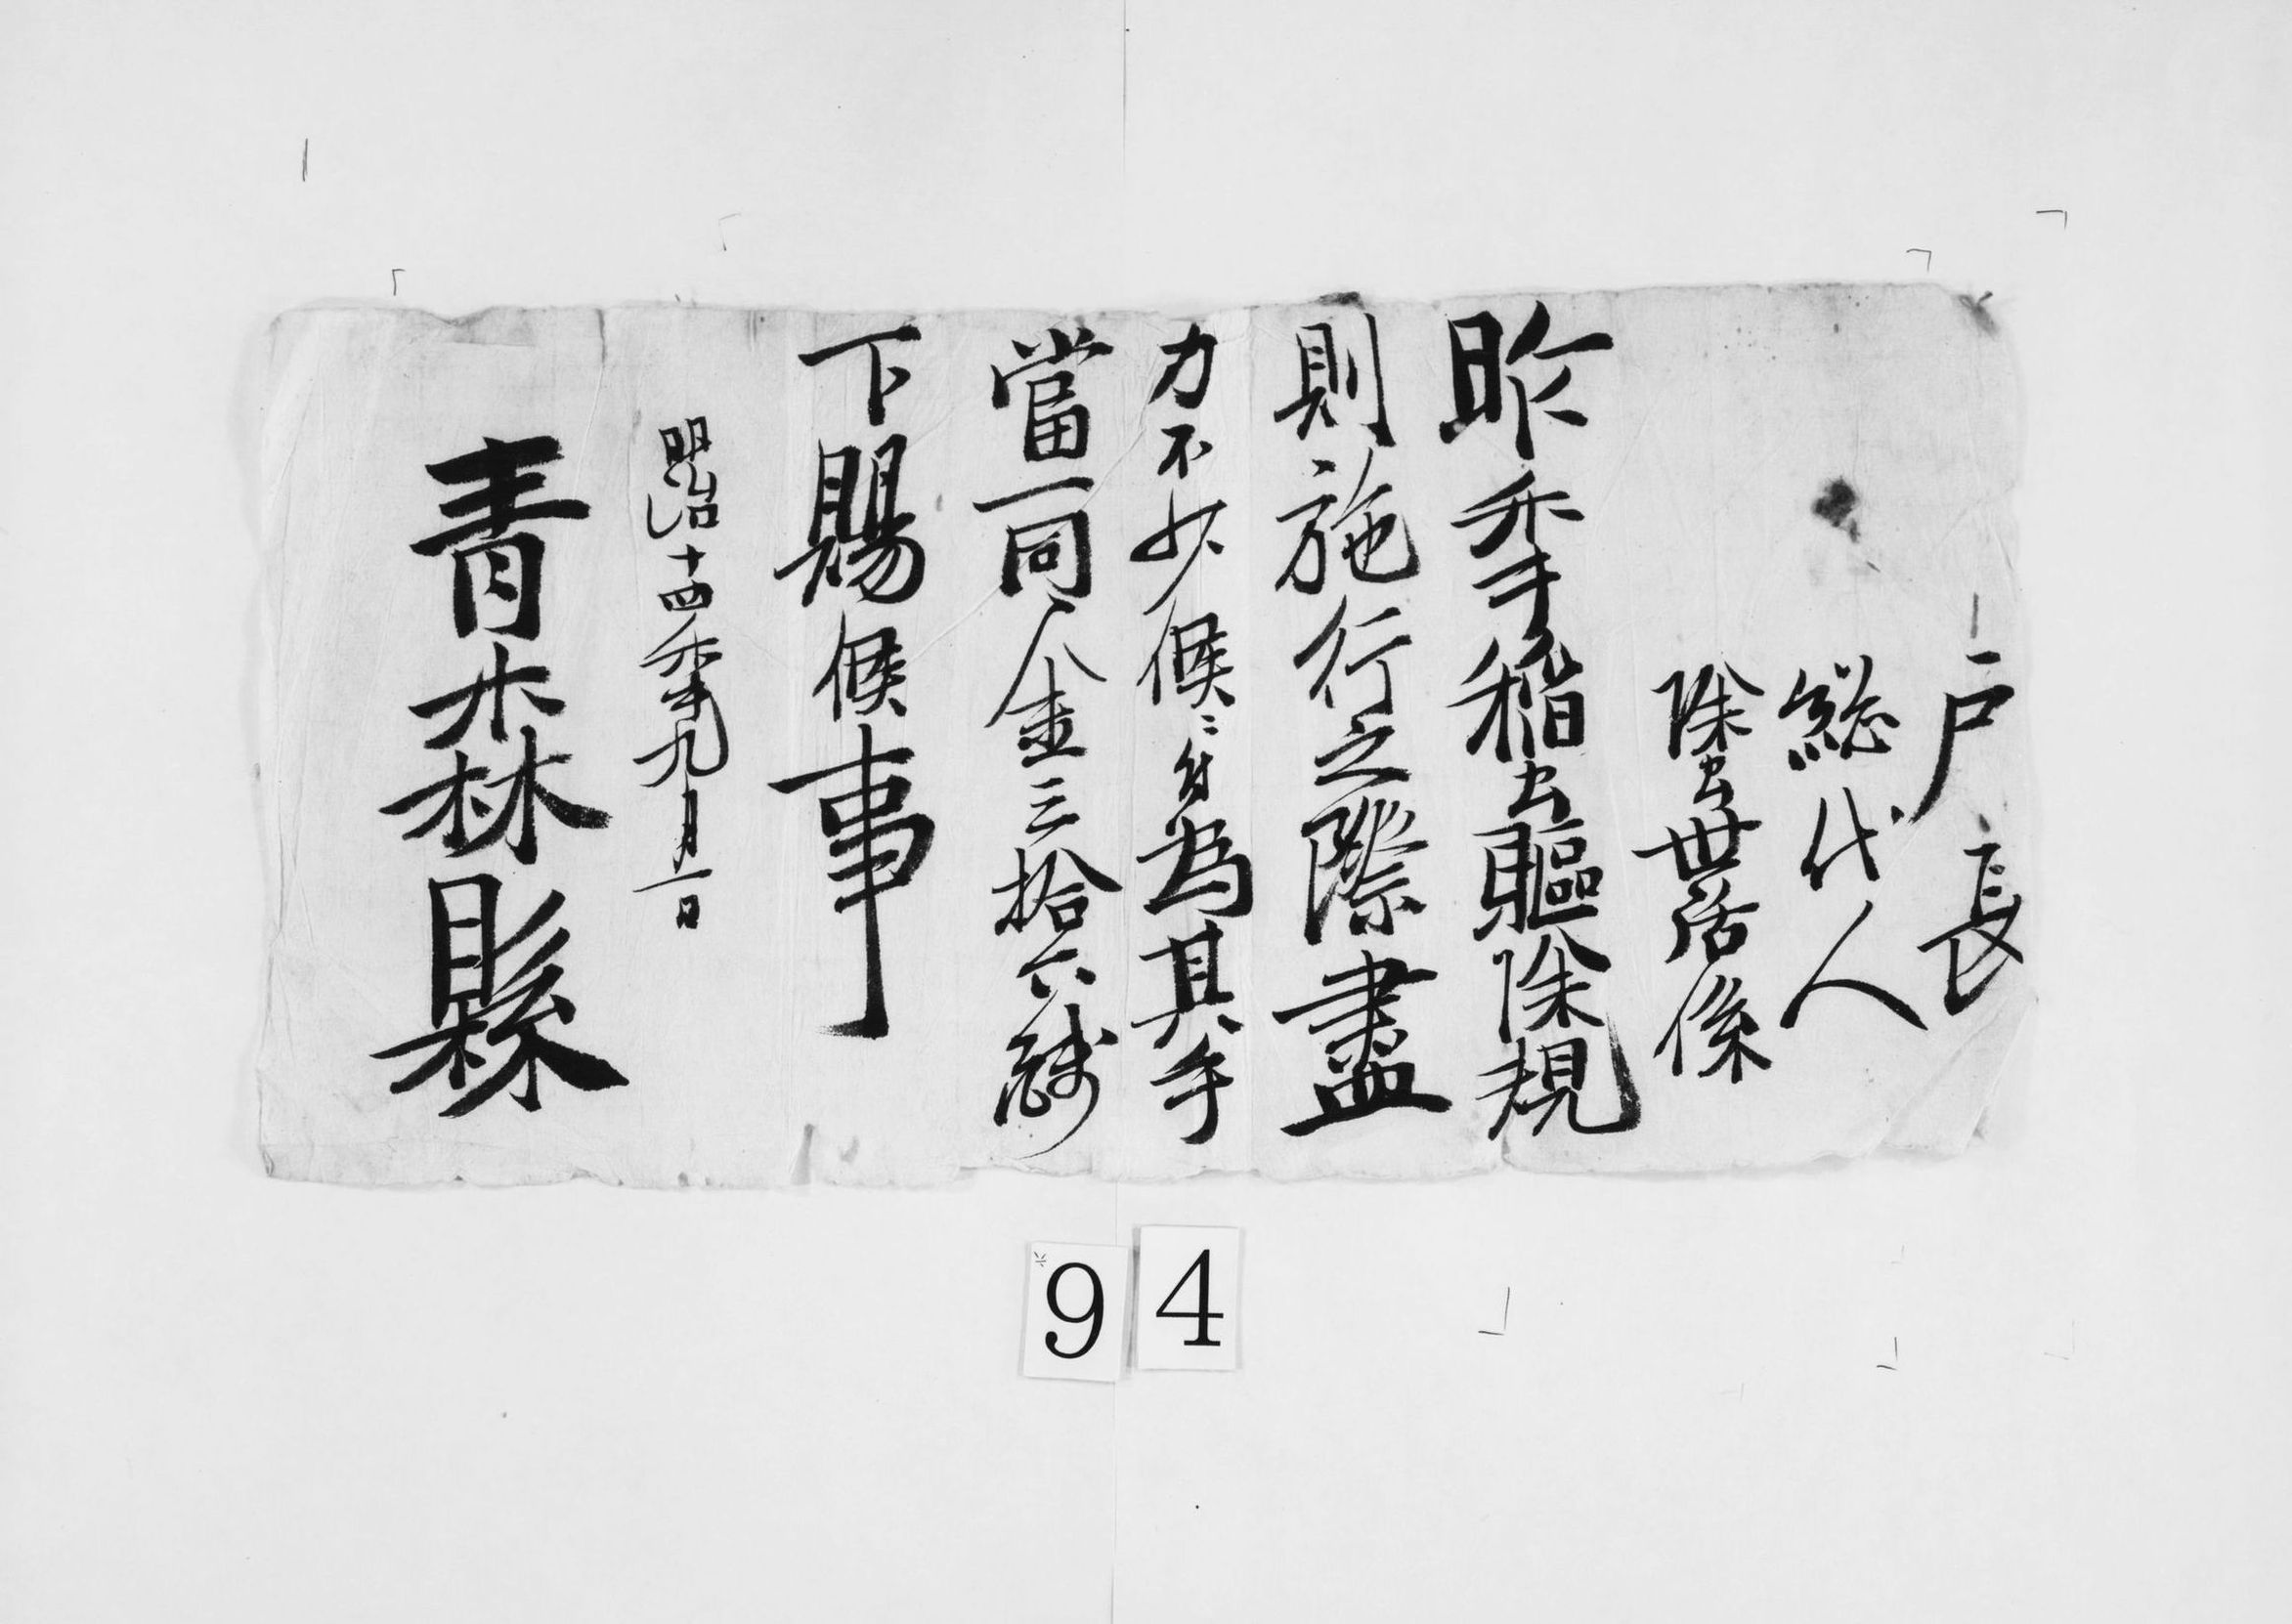 戸長
総代人
除虫世話係
昨年稲虫驅除規
則施行之際盡
力不少候ニ付為其手
當一同ヘ金三拾六銭
下賜候事
明治十四年九月一日
青森縣
94